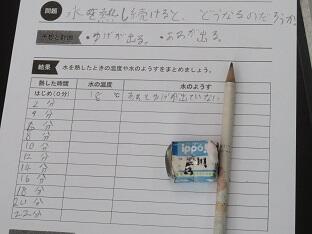 問題 水を熱し続けると、どうなるのだろうか。
予想と計画 ・ゆげが出る。 ・あわが出る。
結果 水を熱したときの温度や水のようすをまとめましょう。
熱した時間 水の温度 水のようす
はじめ(0分) 18 ℃ あわもゆげも出ていない
2 分
4 分
6 分
8 分
10 分
12 分
14 分
16 分
18 分
20 分
22 分
ippo!